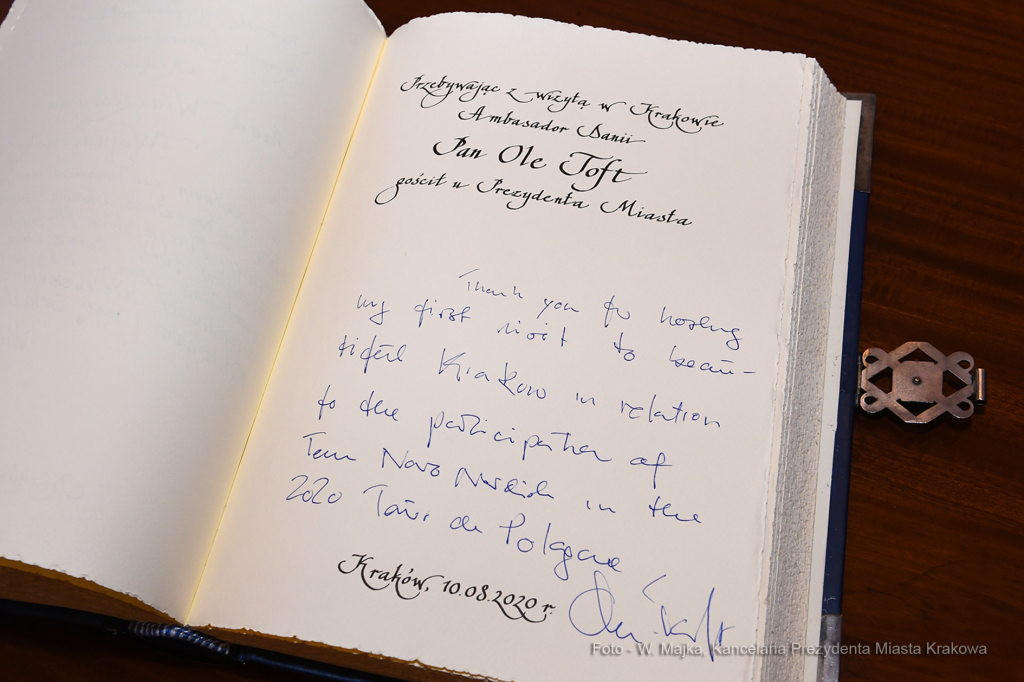 Przebywając z wizytą w Krakowie
Ambasador Danii
Pan Ole Toft
gościł u Prezydenta Miasta
Thank you for hosting
my first visit to beau-
tiful Krakow in relation
to the participation of
Team Novo Nordisk in the
2020 Tour de Pologne
Kraków, 10.08.2020 r.
Foto - W. Majka, Kancelaria Prezydenta Miasta Krakowa